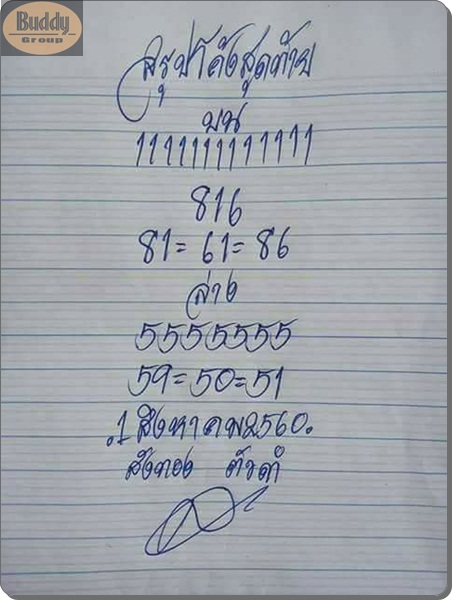 Buddy
Group
สรุปโค้งสุดท้าย
บน
1111111111111
816
81=61=86
ล่าง
5555555
59=50=51
.1 สิงหาคม2560.
สังทอง ตัวดำ